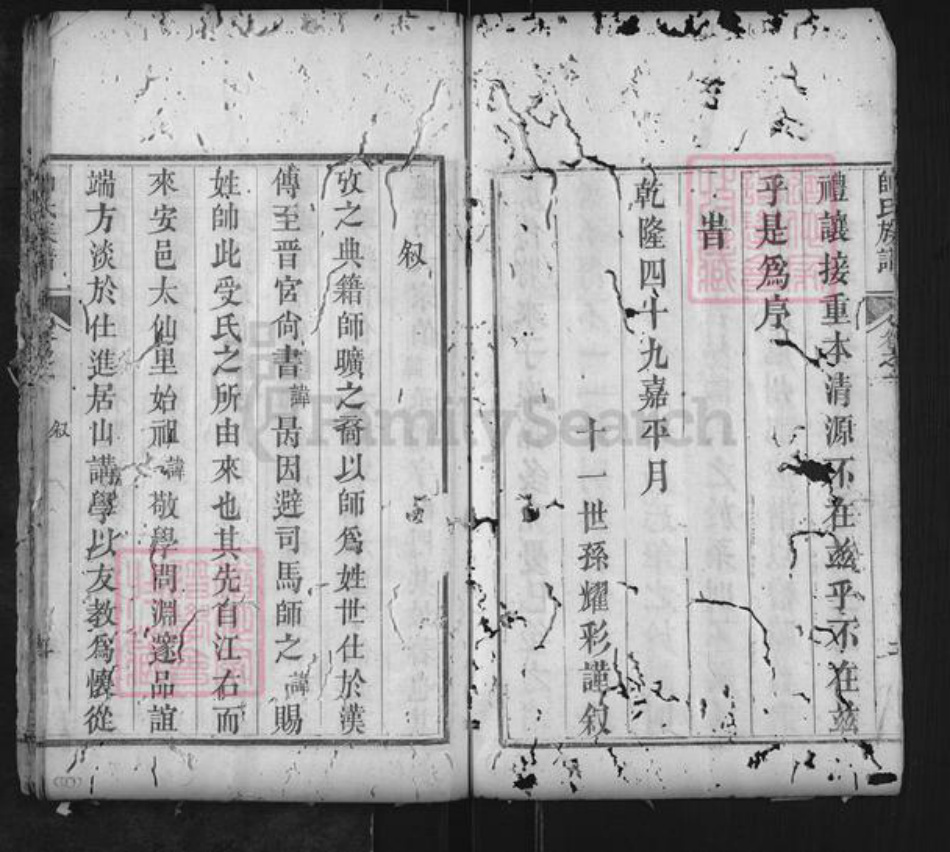 禮讓接重本清源不在兹乎不在兹
乎是爲序
旹
乾隆四十九嘉平月
十一世孫耀彩謹叙
叙
攷之典籍師曠之裔以師爲姓世仕於漢
傳至晋官尙書諱昺因避司馬師之諱賜
姓帥此受氏之所由來也其先自江右而
來安邑太仙里始祖諱敬學問淵邃品誼
端方淡於仕進居山講學以友教爲懷從
叙
FamilySearch